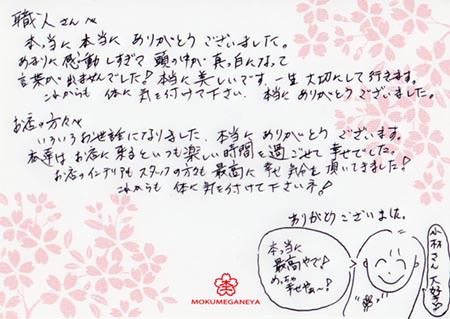 職人さんへ
本当に本当にありがとうございました。
あまりに感動しすぎて頭の中が真っ白になって
言葉が出ませんでした!本当に美しいです。一生大切にして行きます。
これからも体に気を付けて下さい。本当にありがとうございました。
お店の方々へ
いろいろお世話になりました。本当にありがとうございます。
お店に来るといつも楽しい時間を過ごせて幸せでした。
お店のインテリアもスタッフの方も最高に幸せ気分を頂いてきました!
これからも体に気を付けて下さいネ!
ありがとうございました。
本当に
最高やで!
めっちゃ
幸せやぁ〜!
小林さん大好き
MOKUMEGANEYA